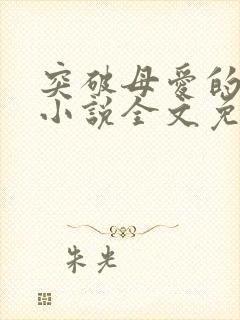 突破母愛的
小說全文免
朱光